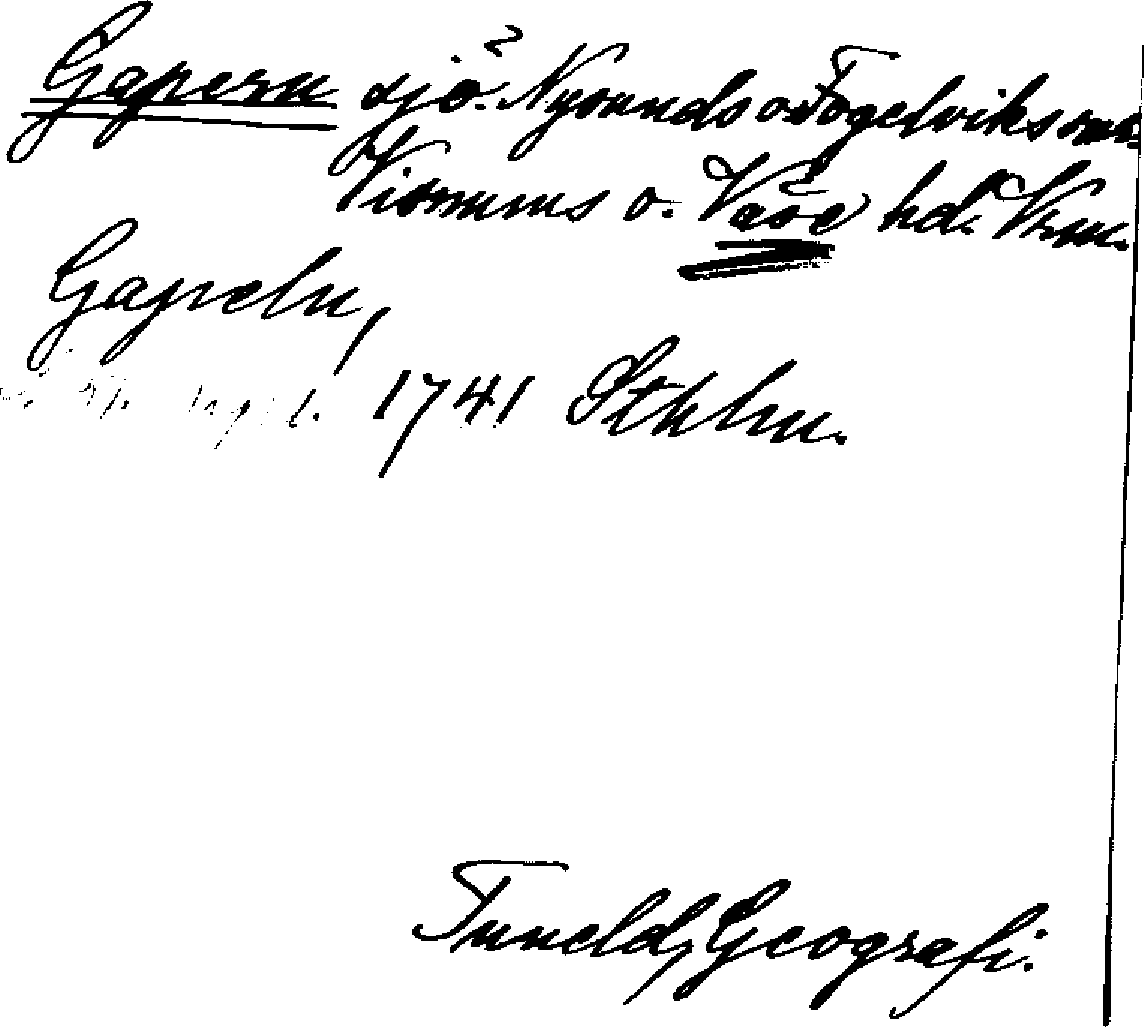 Gapern sjö. 2 Nysunds o. Fogelviks snr
Visnums o. Väse hd. Vrm.
Gapeln,
1741 Sthlm.
Tuneld, Geografi.